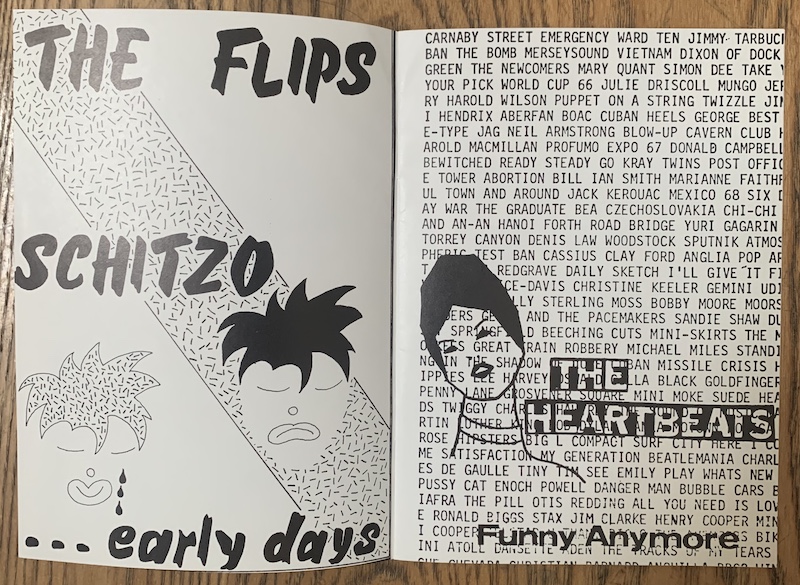 THE FLIPS
SCHITZO
... early days
CARNABY STREET EMERGENCY WARD TEN JIMMY TARBUC
BAN THE BOMB MERSEYSOUND VIETNAM DIXON OF DOCK
GREEN THE NEWCOMERS MARY QUANT SIMON DEE TAKE
YOUR PICK WORLD CUP 66 JULIE DRISCOLL MUNGO JE
RY HAROLD WILSON PUPPET ON A STRING TWIZZLE JI
I HENDRIX ABERFAN BOAC CUBAN HEELS GEORGE BEST
E-TYPE JAG NEIL ARMSTRONG BLOW-UP CAVERN CLUB H
AROLD MACMILLAN PROFUMO EXPO 67 DONALD CAMPBELL
BEWITCHED READY STEADY GO KRAY TWINS POST OFFIC
E TOWER ABORTION BILL IAN SMITH MARIANNE FAITHF
UL TOWN AND AROUND JACK KEROUAC MEXICO 68 SIX D
AY WAR THE GRADUATE BEA CZECHOSLOVAKIA CHI-CHI
AND AN-AN HANOI FORTH ROAD BRIDGE YURI GAGARIN
TORREY CANYON DENIS LAW WOODSTOCK SPUTNIK ATMOS
PHERIC TEST BAN CASSIUS CLAY FORD ANGLIA POP AR
REDGRAVE DAILY SKETCH I'LL GIVE IT FI
CE-DAVIS CHRISTINE KEELER GEMINI UDI
LLY STERLING MOSS BOBBY MOORE MOORS
DERS GE AND THE PACEMAKERS SANDIE SHAW DU
SPRINGF D BEECHING CUTS MINI-SKIRTS THE M
GREAT RAIN ROBBERY MICHAEL MILES STANDI
NG IN THE SHADOW BAN MISSILE CRISIS H
IPPIES LEE HARVEY LLA BLACK GOLDFINGER
PENNY LANE GROSVENER SQUARE MINI MOKE SUEDE HEA
DS TWIGGY CHAR
THE
HEARTBEATS
RTIN LUTHER KIN
ROSE HIPSTERS BIG L COMPACT SURF CITY HERE I CO
ME SATISFACTION MY GENERATION BEATLEMANIA CHARL
ES DE GAULLE TINY TIM SEE EMILY PLAY WHATS NEW
PUSSY CAT ENOCH POWELL DANGER MAN BUBBLE CARS B
IAFRA THE PILL OTIS REDDING ALL YOU NEED IS LOV
E RONALD BIGGS STAX JIM CLARKE HENRY COOPER MIN
I COOPER BIK
Funny Anymore
INI ATOLL DANSETTE THE TRACKS OF MY TEARS